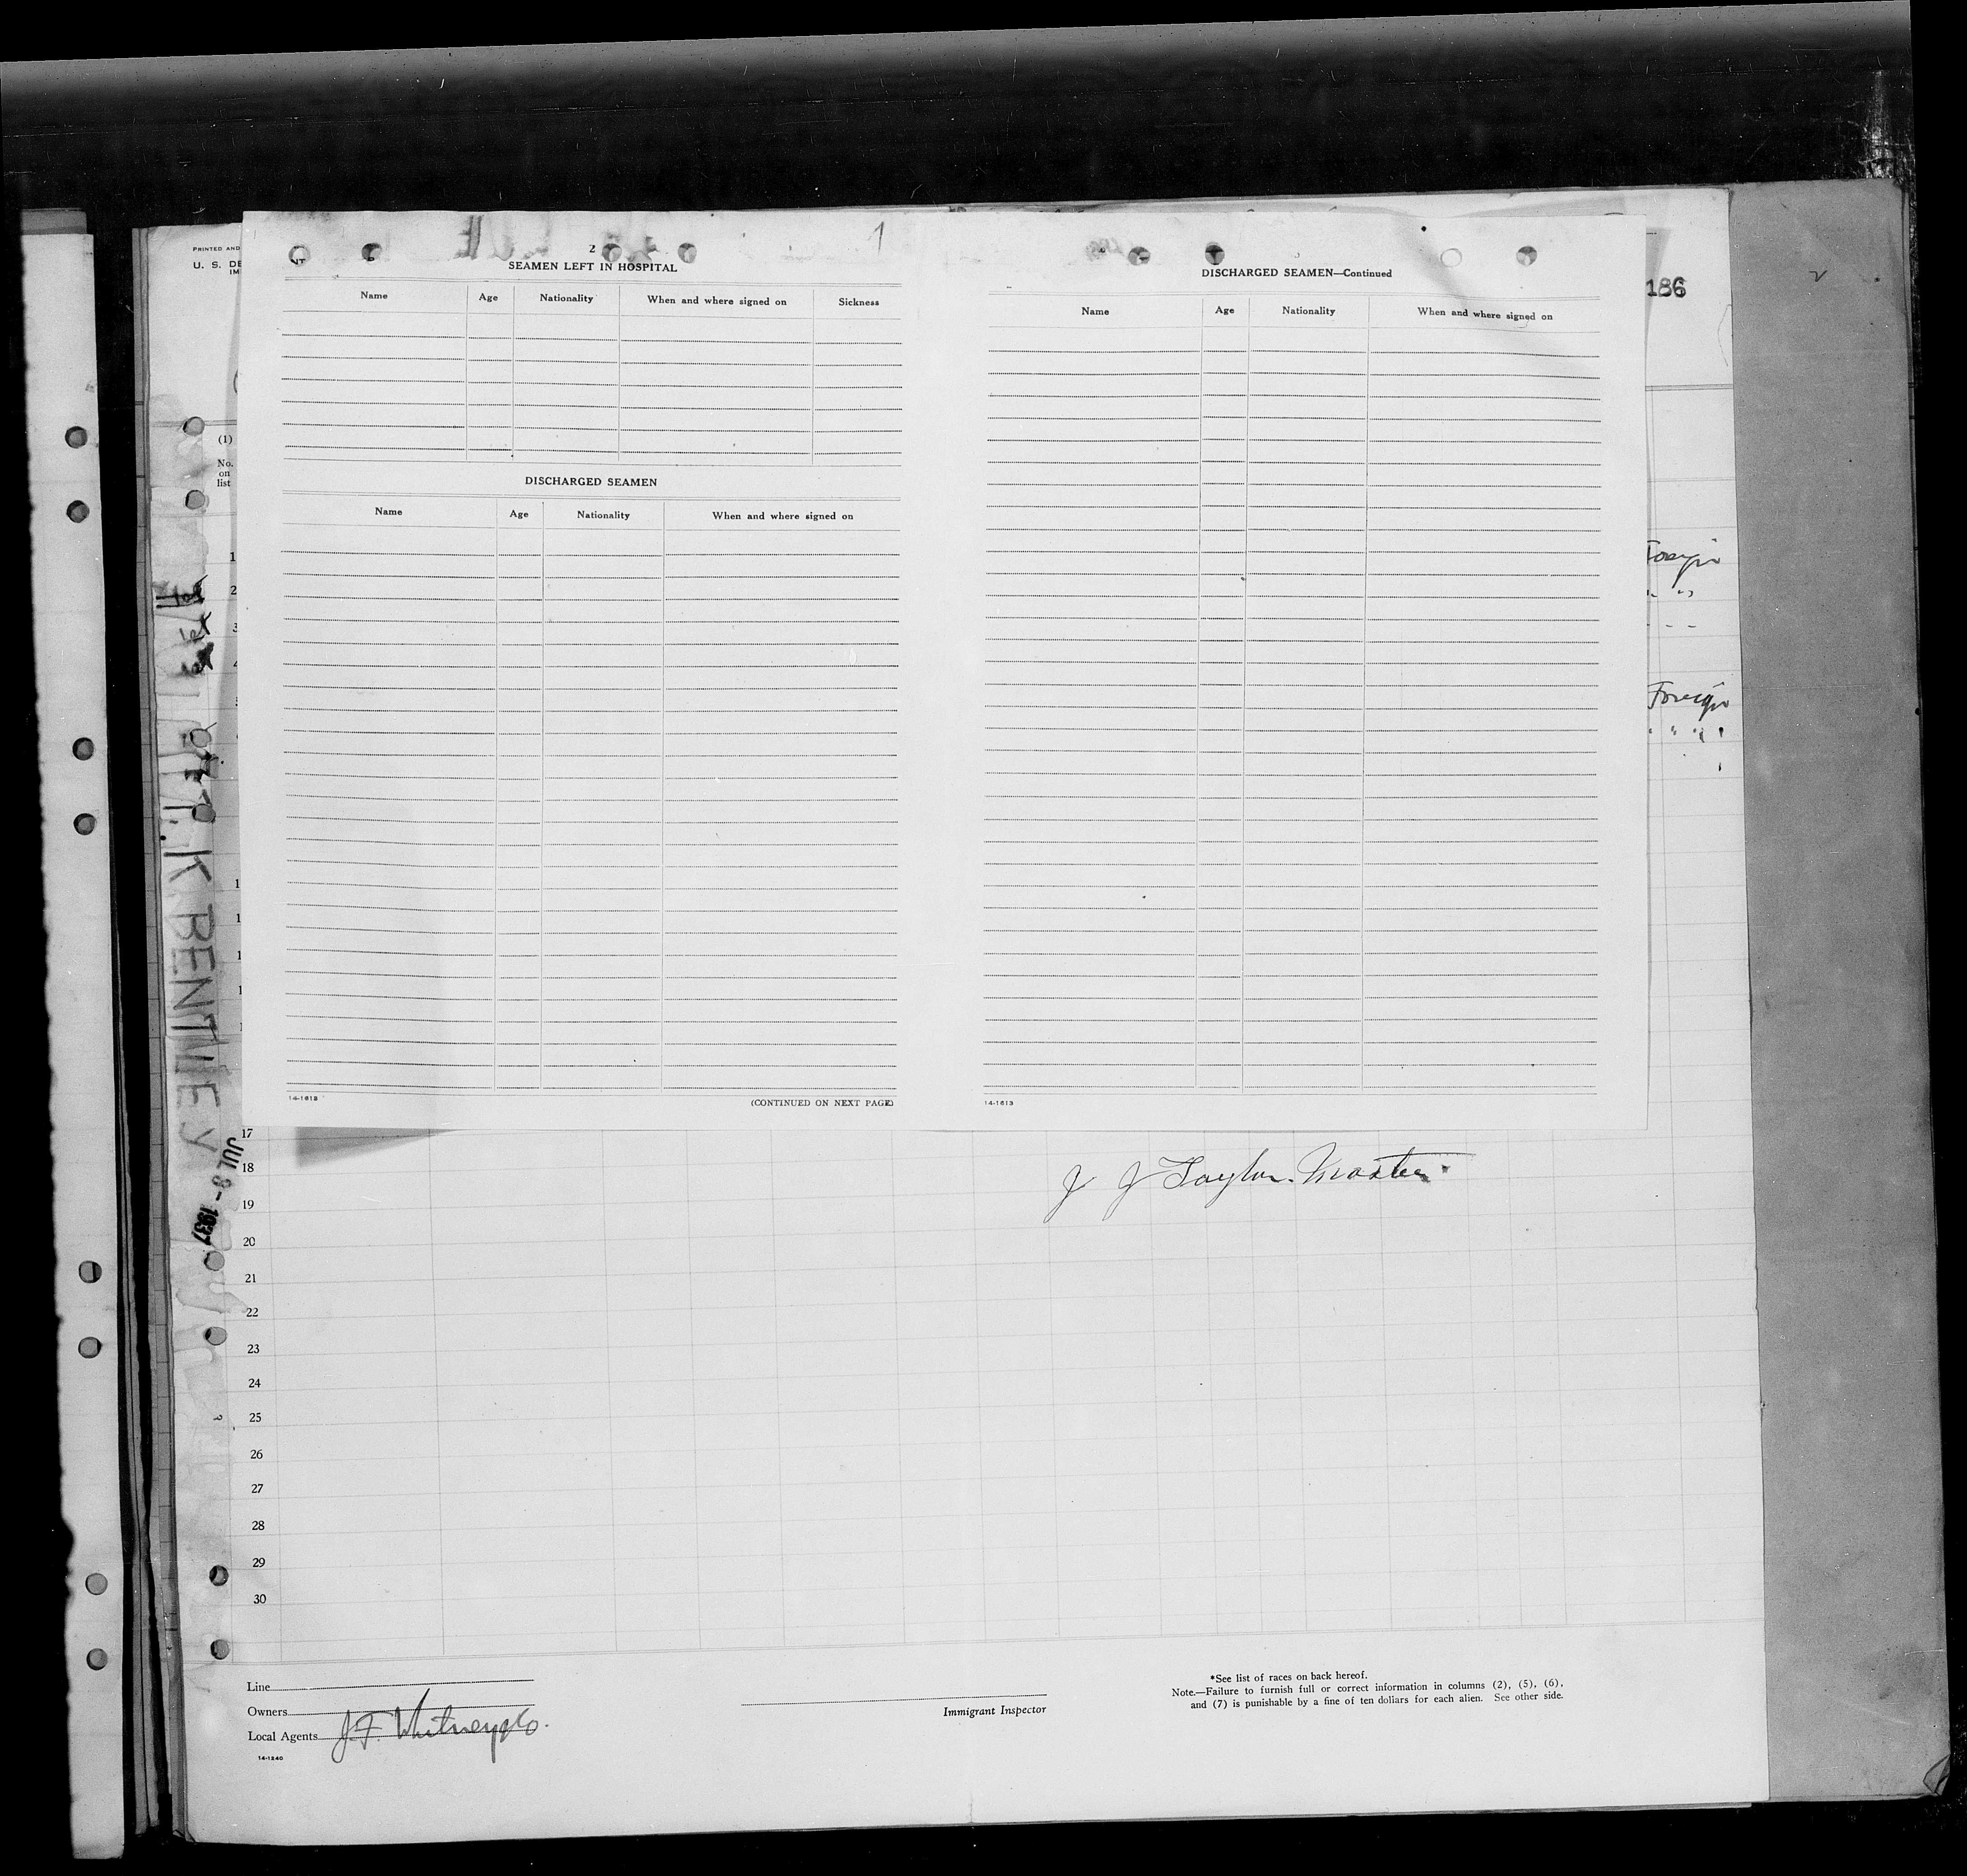 PRINTED AND
U. S. DE
IM
186
2
1
SEAMEN LEFT IN HOSPITAL
Name Age Nationality When and where signed on Sickness
DISCHARGED SEAMEN
Name Age Nationality When and where signed on
14-1613
(CONTINUED ON NEXT PAGE)
DISCHARGED SEAMEN—Continued
Name Age Nationality When and where signed on
14-1613
(1)
No.
on
list
1
2
3
Foreign
Foreign
JUL 8 - 1937
17
18
J J Taylor. Master
19
20
21
22
23
24
25
26
27
28
29
30
Line
Owners
Local Agents J.F. Whitney & Co.
14-1240
Immigrant Inspector
*See list of races on back hereof.
Note.—Failure to furnish full or correct information in columns (2), (5), (6),
and (7) is punishable by a fine of ten dollars for each alien. See other side.